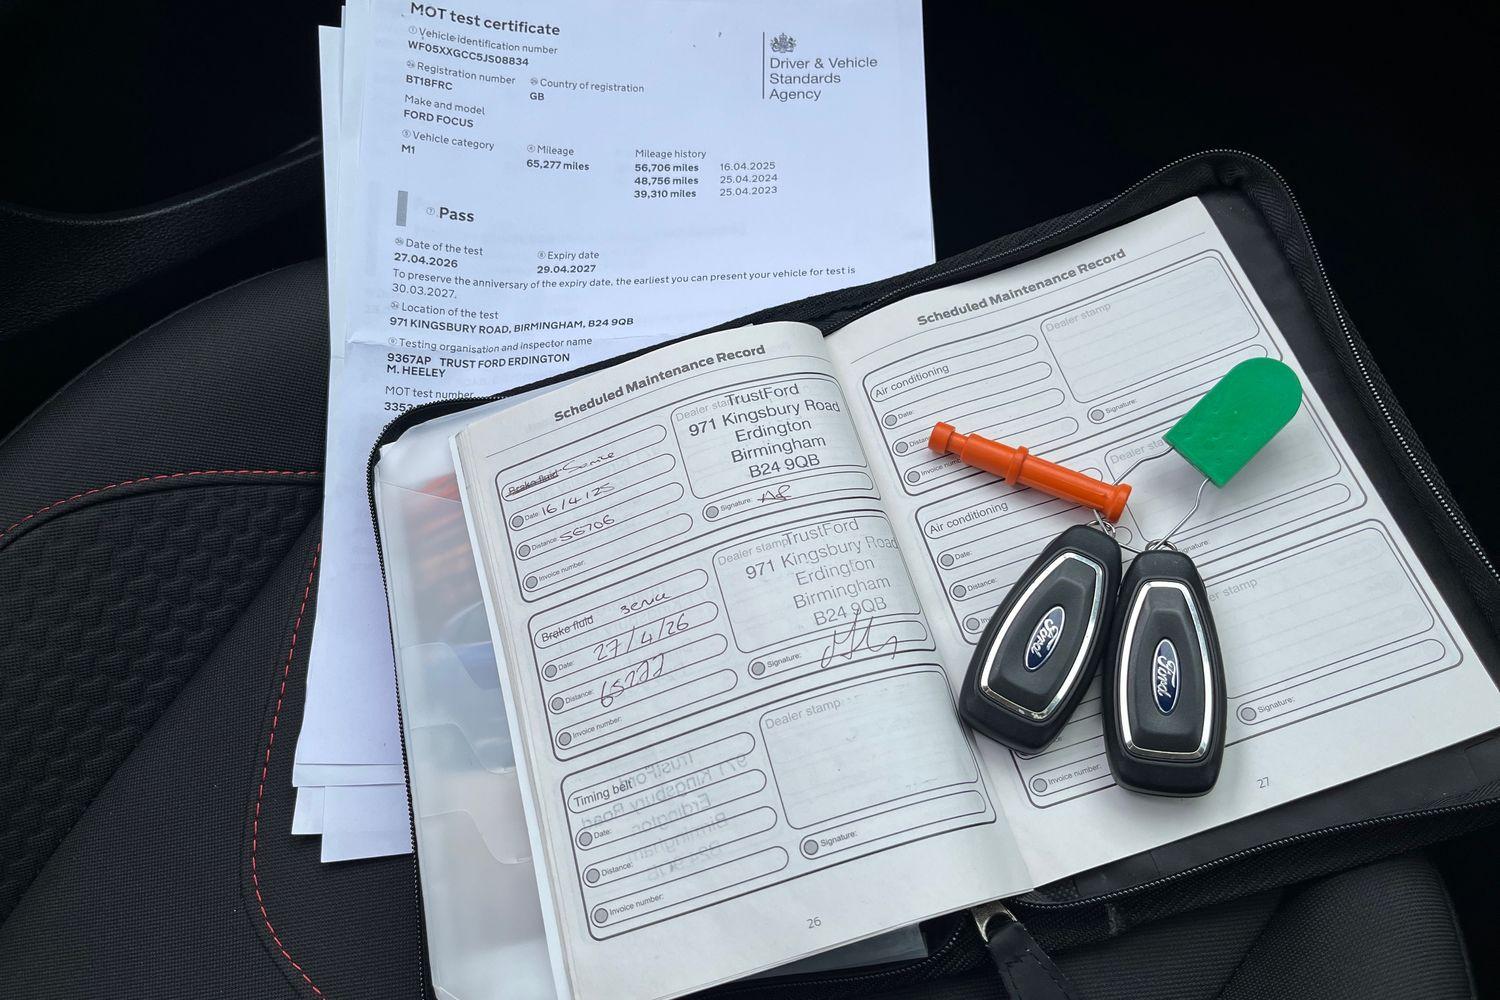 MOT test certificate
Vehicle identification number
WF05XXGCC5JS08834
Registration number
BT18FRC
Country of registration
GB
Make and model
FORD FOCUS
Vehicle category
M1
Mileage
65,277 miles
Mileage history
56,706 miles 16.04.2025
48,756 miles 25.04.2024
39,310 miles 25.04.2023
Driver & Vehicle
Standards
Agency
Pass
Date of the test
27.04.2026
Expiry date
29.04.2027
To preserve the anniversary of the expiry date, the earliest you can present your vehicle for test is
30.03.2027.
Location of the test
971 KINGSBURY ROAD, BIRMINGHAM, B24 9QB
Testing organisation and inspector name
9367AP TRUST FORD ERDINGTON
M. HEELEY
MOT test number
3353
Scheduled Maintenance Record
Brake fluid Service
Date: 16/4/25
Distance: 56706
Invoice number:
Dealer stamp
TrustFord
971 Kingsbury Road
Erdington
Birmingham
B24 9QB
Signature:
Brake fluid Service
Date: 27/4/26
Distance: 65277
Invoice number:
Dealer stamp
TrustFord
971 Kingsbury Road
Erdington
Birmingham
B24 9QB
Signature:
Timing belt
Date:
Distance:
Invoice number:
Dealer stamp
Signature:
26
Scheduled Maintenance Record
Air conditioning
Date:
Invoice
Dealer stamp
Signature:
Air conditioning
Date:
Distance:
Dealer
Signature:
stamp
Invoice number:
Signature:
27
Ford
Ford